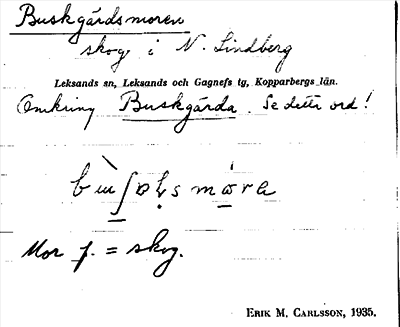 Buskgårdsmoren
skog i N. Lindberg
Leksands sn, Leksands och Gagnefs tg, Kopparbergs län.
Omkring Buskgårda. Se detta ord!
Mor f. = skog.
ERIK M. CARLSSON, 1935.